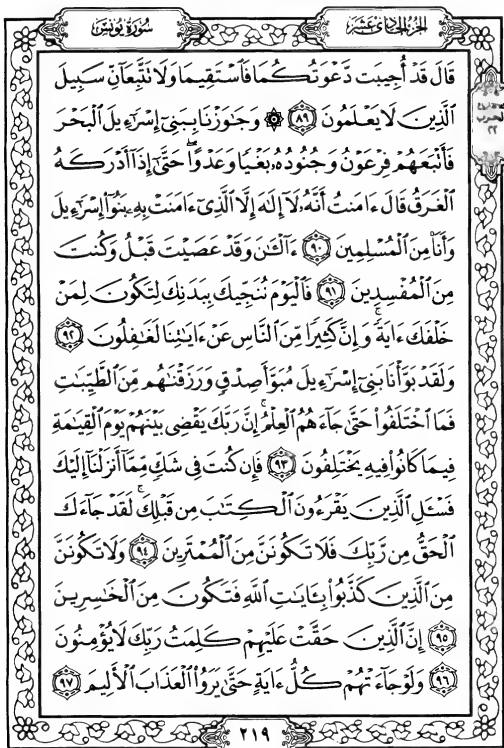 سُورَةُ يُونُسَ
الجُزْءُ الحَادِي عَشَرَ
قَالَ قَدْ أُجِيبَت دَّعْوَتُكُمَا فَٱسْتَقِيمَا وَلَا تَتَّبِعَآنِّ سَبِيلَ
ٱلَّذِينَ لَا يَعْلَمُونَ ﴿٨٩﴾ ۞ وَجَٰوَزْنَا بِبَنِىٓ إِسْرَٰٓءِيلَ ٱلْبَحْرَ
فَأَتْبَعَهُمْ فِرْعَوْنُ وَجُنُودُهُۥ بَغْيًا وَعَدْوًا ۖ حَتَّىٰٓ إِذَآ أَدْرَكَهُ
ٱلْغَرَقُ قَالَ ءَامَنتُ أَنَّهُۥ لَآ إِلَٰهَ إِلَّا ٱلَّذِىٓ ءَامَنَتْ بِهِۦ بَنُوٓا۟ إِسْرَٰٓءِيلَ
وَأَنَا۠ مِنَ ٱلْمُسْلِمِينَ ﴿٩٠﴾ ءَآلْـَٰٔنَ وَقَدْ عَصَيْتَ قَبْلُ وَكُنتَ
مِنَ ٱلْمُفْسِدِينَ ﴿٩١﴾ فَٱلْيَوْمَ نُنَجِّيكَ بِبَدَنِكَ لِتَكُونَ لِمَنْ
خَلْفَكَ ءَايَةً ۚ وَإِنَّ كَثِيرًا مِّنَ ٱلنَّاسِ عَنْ ءَايَٰتِنَا لَغَٰفِلُونَ ﴿٩٢﴾
وَلَقَدْ بَوَّأْنَا بَنِىٓ إِسْرَٰٓءِيلَ مُبَوَّأَ صِدْقٍ وَرَزَقْنَٰهُم مِّنَ ٱلطَّيِّبَٰتِ
فَمَا ٱخْتَلَفُوا۟ حَتَّىٰ جَآءَهُمُ ٱلْعِلْمُ ۚ إِنَّ رَبَّكَ يَقْضِى بَيْنَهُمْ يَوْمَ ٱلْقِيَٰمَةِ
فِيمَا كَانُوا۟ فِيهِ يَخْتَلِفُونَ ﴿٩٣﴾ فَإِن كُنتَ فِى شَكٍّ مِّمَّآ أَنزَلْنَآ إِلَيْكَ
فَسْـَٔلِ ٱلَّذِينَ يَقْرَءُونَ ٱلْكِتَٰبَ مِن قَبْلِكَ ۚ لَقَدْ جَآءَكَ
ٱلْحَقُّ مِن رَّبِّكَ فَلَا تَكُونَنَّ مِنَ ٱلْمُمْتَرِينَ ﴿٩٤﴾ وَلَا تَكُونَنَّ
مِنَ ٱلَّذِينَ كَذَّبُوا۟ بِـَٔايَٰتِ ٱللَّهِ فَتَكُونَ مِنَ ٱلْخَٰسِرِينَ
﴿٩٥﴾ إِنَّ ٱلَّذِينَ حَقَّتْ عَلَيْهِمْ كَلِمَتُ رَبِّكَ لَا يُؤْمِنُونَ
﴿٩٦﴾ وَلَوْ جَآءَتْهُمْ كُلُّ ءَايَةٍ حَتَّىٰ يَرَوُا۟ ٱلْعَذَابَ ٱلْأَلِيمَ ﴿٩٧﴾
٢١٩